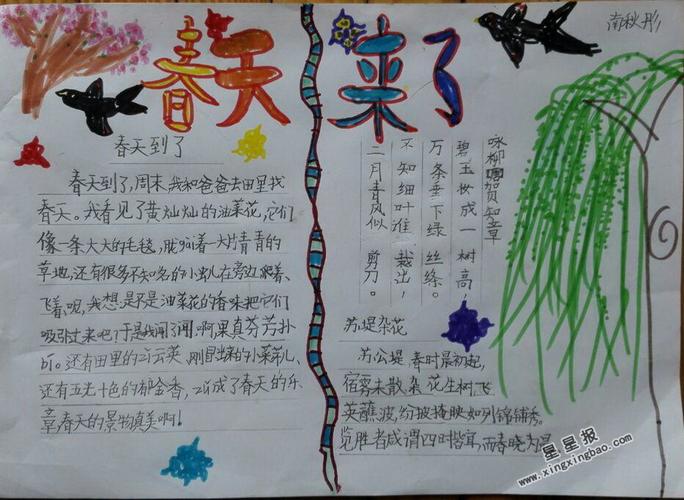 春天来了
南秋彤
春天到了
春天到了,周末,我和爸爸去田里找
春天。我看见了黄灿灿的油菜花,它们
像一条大大的毛毯,脱着一大片青青的
草地,还有很多不知名的小虫在旁边爬着、
飞着呢,我想是不是油菜花的香味把它们
吸引过来吧!于是我闻了闻,啊果真芬芳扑
还有田里的云英,刚冒出的小菜
还有五光十色的郁金香,成了春天的乐
章春天的景物真美啊!
咏柳 贺知章
碧玉妆成一树高,
万条垂下绿丝绦。
不知细叶谁裁出,
二月春风似剪刀。
苏堤杂花
苏公堤春时晨初起,
宿雾未散杂花生树飞
英蘸波,纷披掩映如列锦铺秀。
览胜者咸谓四时皆宜,而春晓为最
星星报
www.xingxingbao.com